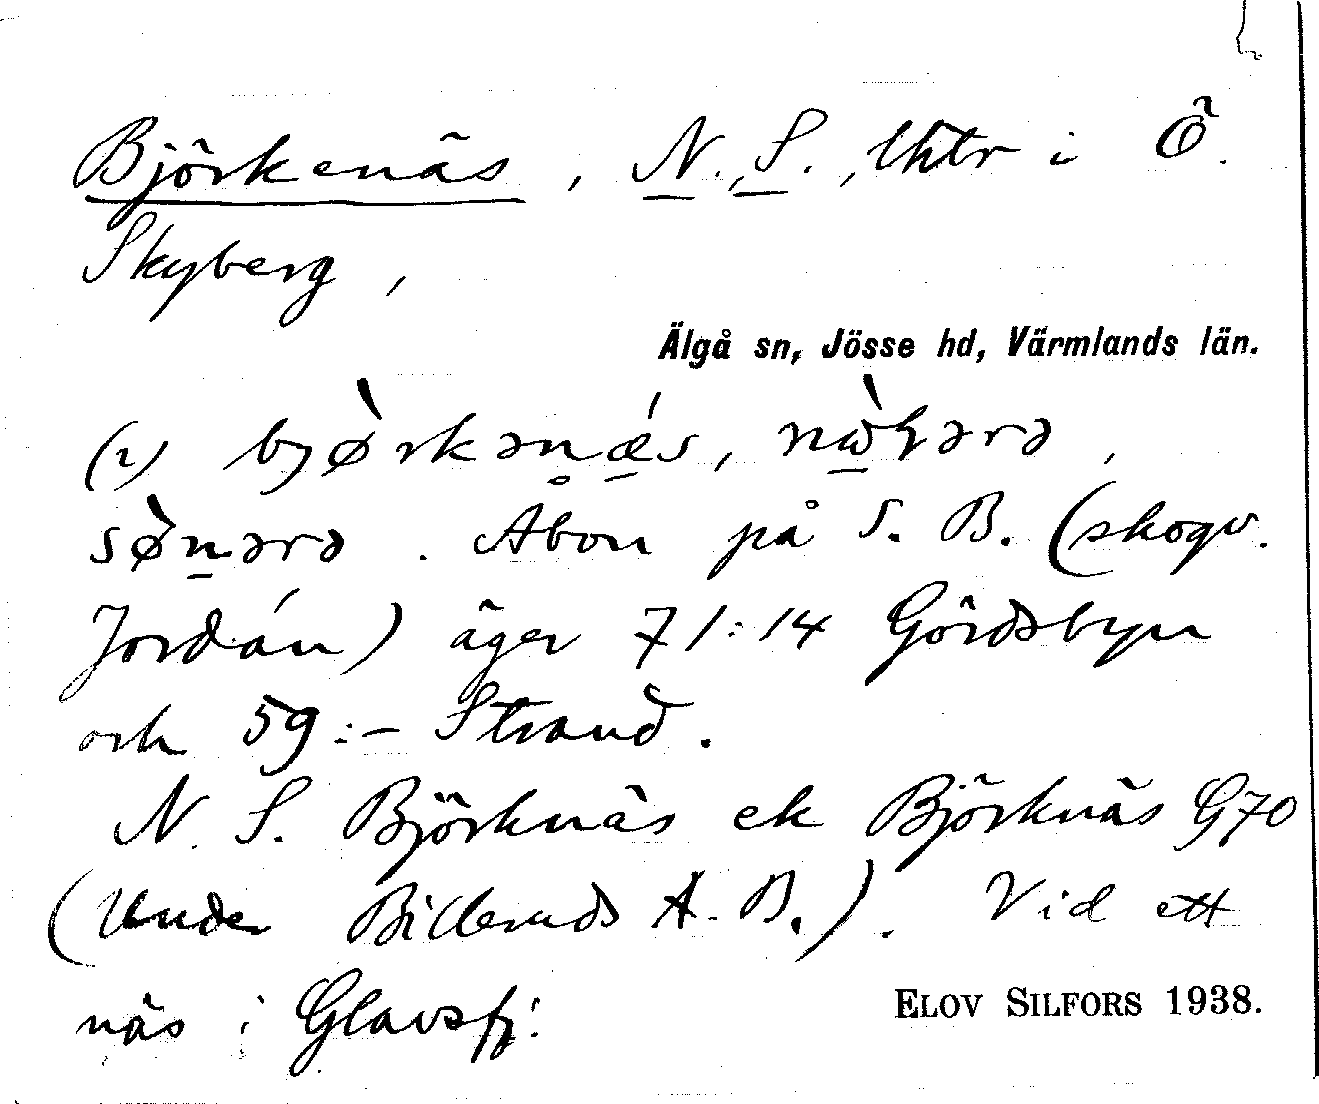 Björkenäs, N., S., lhtr i Ö.
Skyberg,
Älgå sn, Jösse hd, Värmlands län.
(2) bjø̀rkənǽs, nɷ̀ɦərə,
sø̀nərə. Åbon på S. B. (skogv.
Jordán) äger 71:14 Gördsbyn
och 59:– Strand.
N. S. Björknäs ek Björknäs G70
(Under Billeruds A.B.). Vid ett
näs i Glavsfj:
ELOV SILFORS 1938.